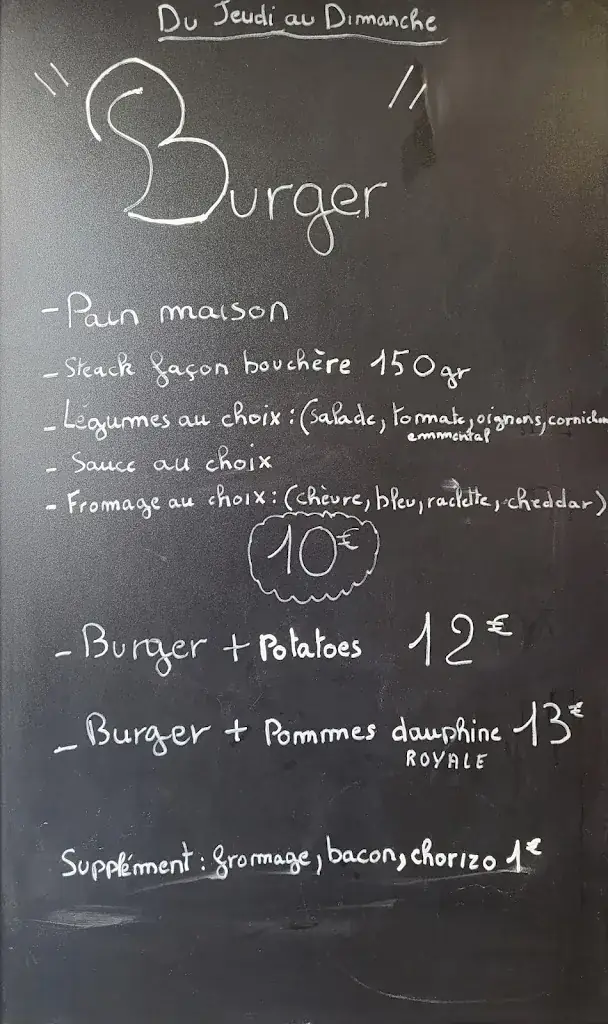 Du Jeudi au Dimanche
" Burger "
- Pain maison
- Steack façon bouchère 150gr
- Légumes au choix : (salade, tomate, oignons, cornichon
emmental
- Sauce au choix
- Fromage au choix : (chèvre, bleu, raclette, cheddar)
10€
- Burger + Potatoes 12€
- Burger + Pommes dauphine 13€
ROYALE
Supplément : fromage, bacon, chorizo 1€